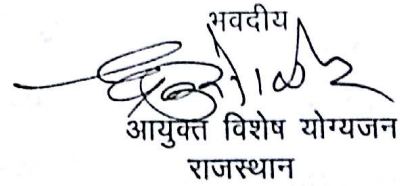 भवदीय
आयुक्त विशेष योग्यजन
राजस्थान